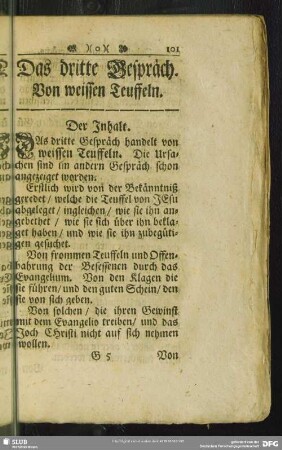 )o( 101
Das dritte Gespräch.
Von weissen Teuffeln.
Der Inhalt.
DAs dritte Gespräch handelt von
weissen Teuffeln. Die Ursa-
chen sind im andern Gespräch schon
angezeiget worden.
Erstlich wird von der Bekänntniß
geredet / welche die Teuffel von JEsu
abgeleget / ingleichen / wie sie ihn an-
gebethet / wie sie sich über ihn bekla-
get haben / und wie sie ihn zubegüti-
gen gesuchet.
Von frommen Teuffeln und Offen-
bahrung der Besessenen durch das
Evangelium. Von den Klagen die
sie führen / und den guten Schein / den
sie von sich geben.
Von solchen / die ihren Gewinst
mit dem Evangelio treiben / und das
Joch CHristi nicht auf sich nehmen
wollen.
G 5 Von
SLUB
DFG